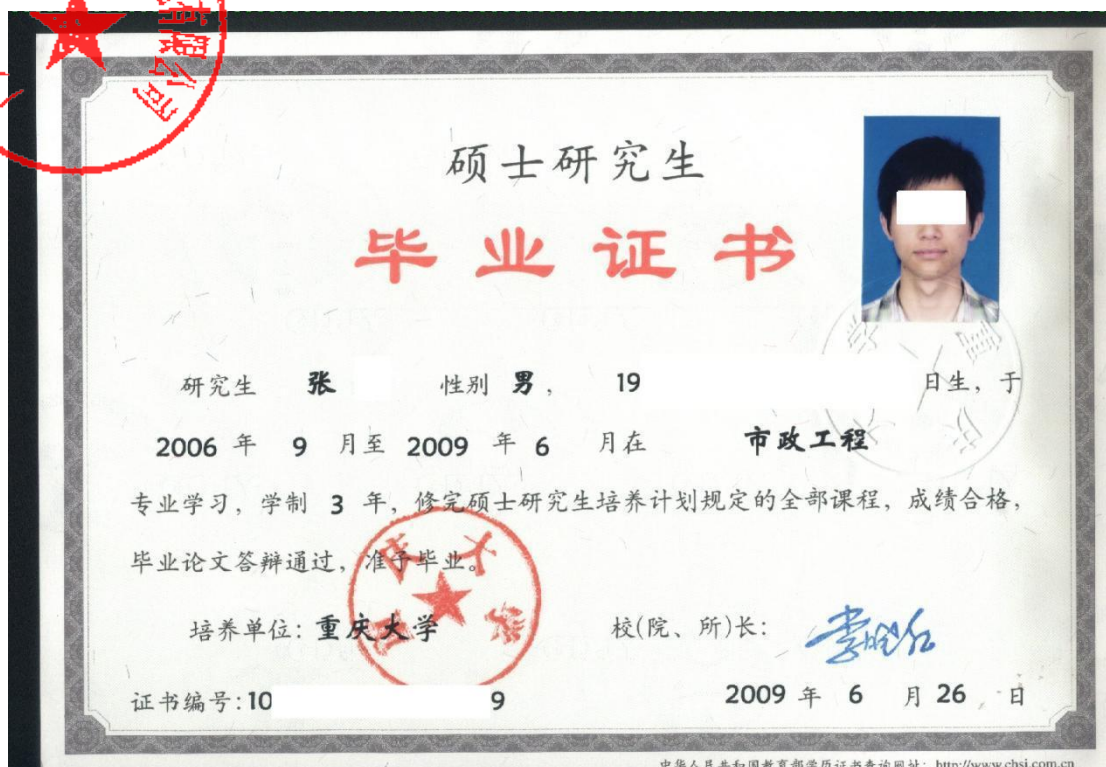 限公司
硕士研究生
毕业证书
研究生 张 性别 男, 19 日生, 于
2006 年 9 月至 2009 年 6 月在 市政工程
专业学习, 学制 3 年, 修完硕士研究生培养计划规定的全部课程, 成绩合格,
毕业论文答辩通过, 准予毕业。
重庆大学
培养单位: 重庆大学 校(院、所)长:
证书编号: 10 9 2009 年 6 月 26 日
中华人民共和国教育部学历证书查询网址: http://www.chsi.com.cn